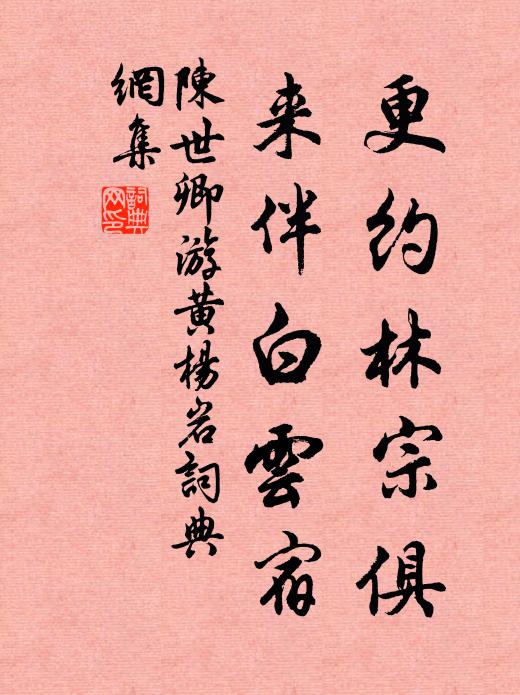 更约林宗俱
来伴白雲宿
陳世卿游黄楊岩詞典
網集
詞典
网印